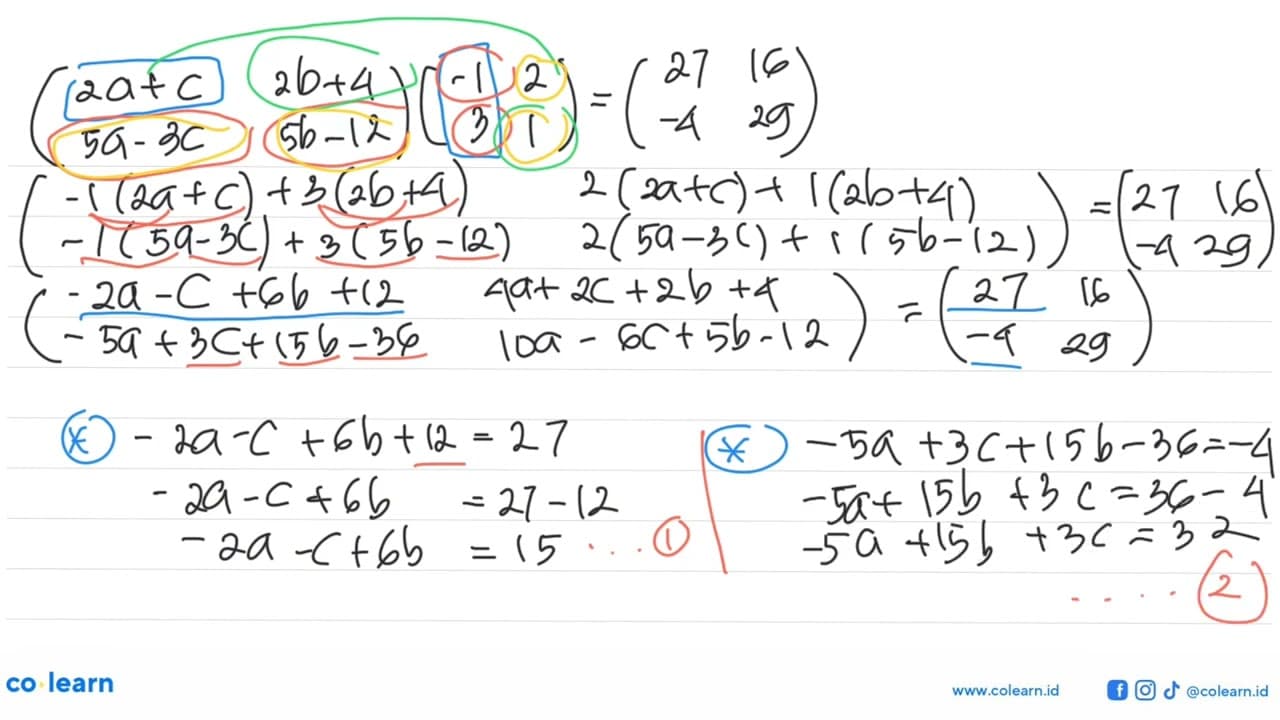 (2a+c 2b+4) (-1 2) = (27 16)
(5a-3c 5b-12) (3 1) (-4 29)
(-1(2a+c)+3(2b+4) 2(2a+c)+1(2b+4)) = (27 16)
(-1(5a-3c)+3(5b-12) 2(5a-3c)+1(5b-12)) (-4 29)
(-2a-c+6b+12 4a+2c+2b+4) = (27 16)
(-5a+3c+15b-36 10a-6c+5b-12) (-4 29)
* -2a-c+6b+12=27
-2a-c+6b =27-12
-2a-c+6b =15 .... 1
* -5a+3c+15b-36=-4
-5a+15b+3c=36-4
-5a+15b+3c=32
.... 2
co learn
www.colearn.id
@colearn.id